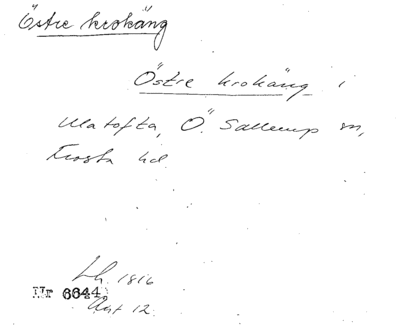 Östre krokäng
Östre krokäng i
Ullatofta, Ö. Sallerup sn,
Frosta hd.
Lh. 1816
Nr 6644
Akt 12.